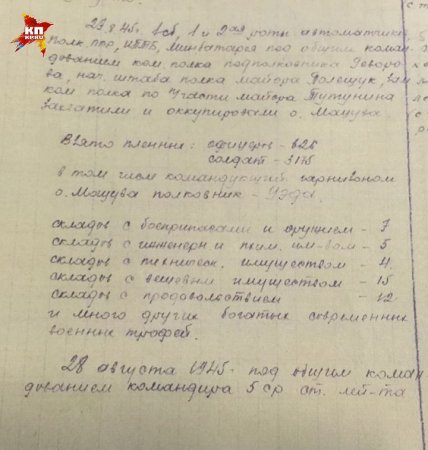 КП
KP.RU
23.8.45г. 1 сб, 1 и 2ая роты автоматчиков,
полк. ПТР, ИПТБ, минбатарея под общим коман
дованием ком. полка подполковника Геворо-
ва, нач. штаба полка майора Долещук зам
ком полка по Уч.части майора Тутунина
захватили и оккупировали о. Мацува.
Взято пленных: офицеров - 626
солдат - 3175
в том числе командующий гарнизоном
о. Мацува полковник - Уэда.
складов с боеприпасами и оружием - 7
складов с инженерн и хим. им-вом - 5
складов с техническ. имуществом - 4.
складов с вещевым имуществом - 15
складов с продовольствием - 12
и много других богатых современных
военных трофей.
28 августа 1945г. под общим коман
дованием командира 5 ср ст. лей-та